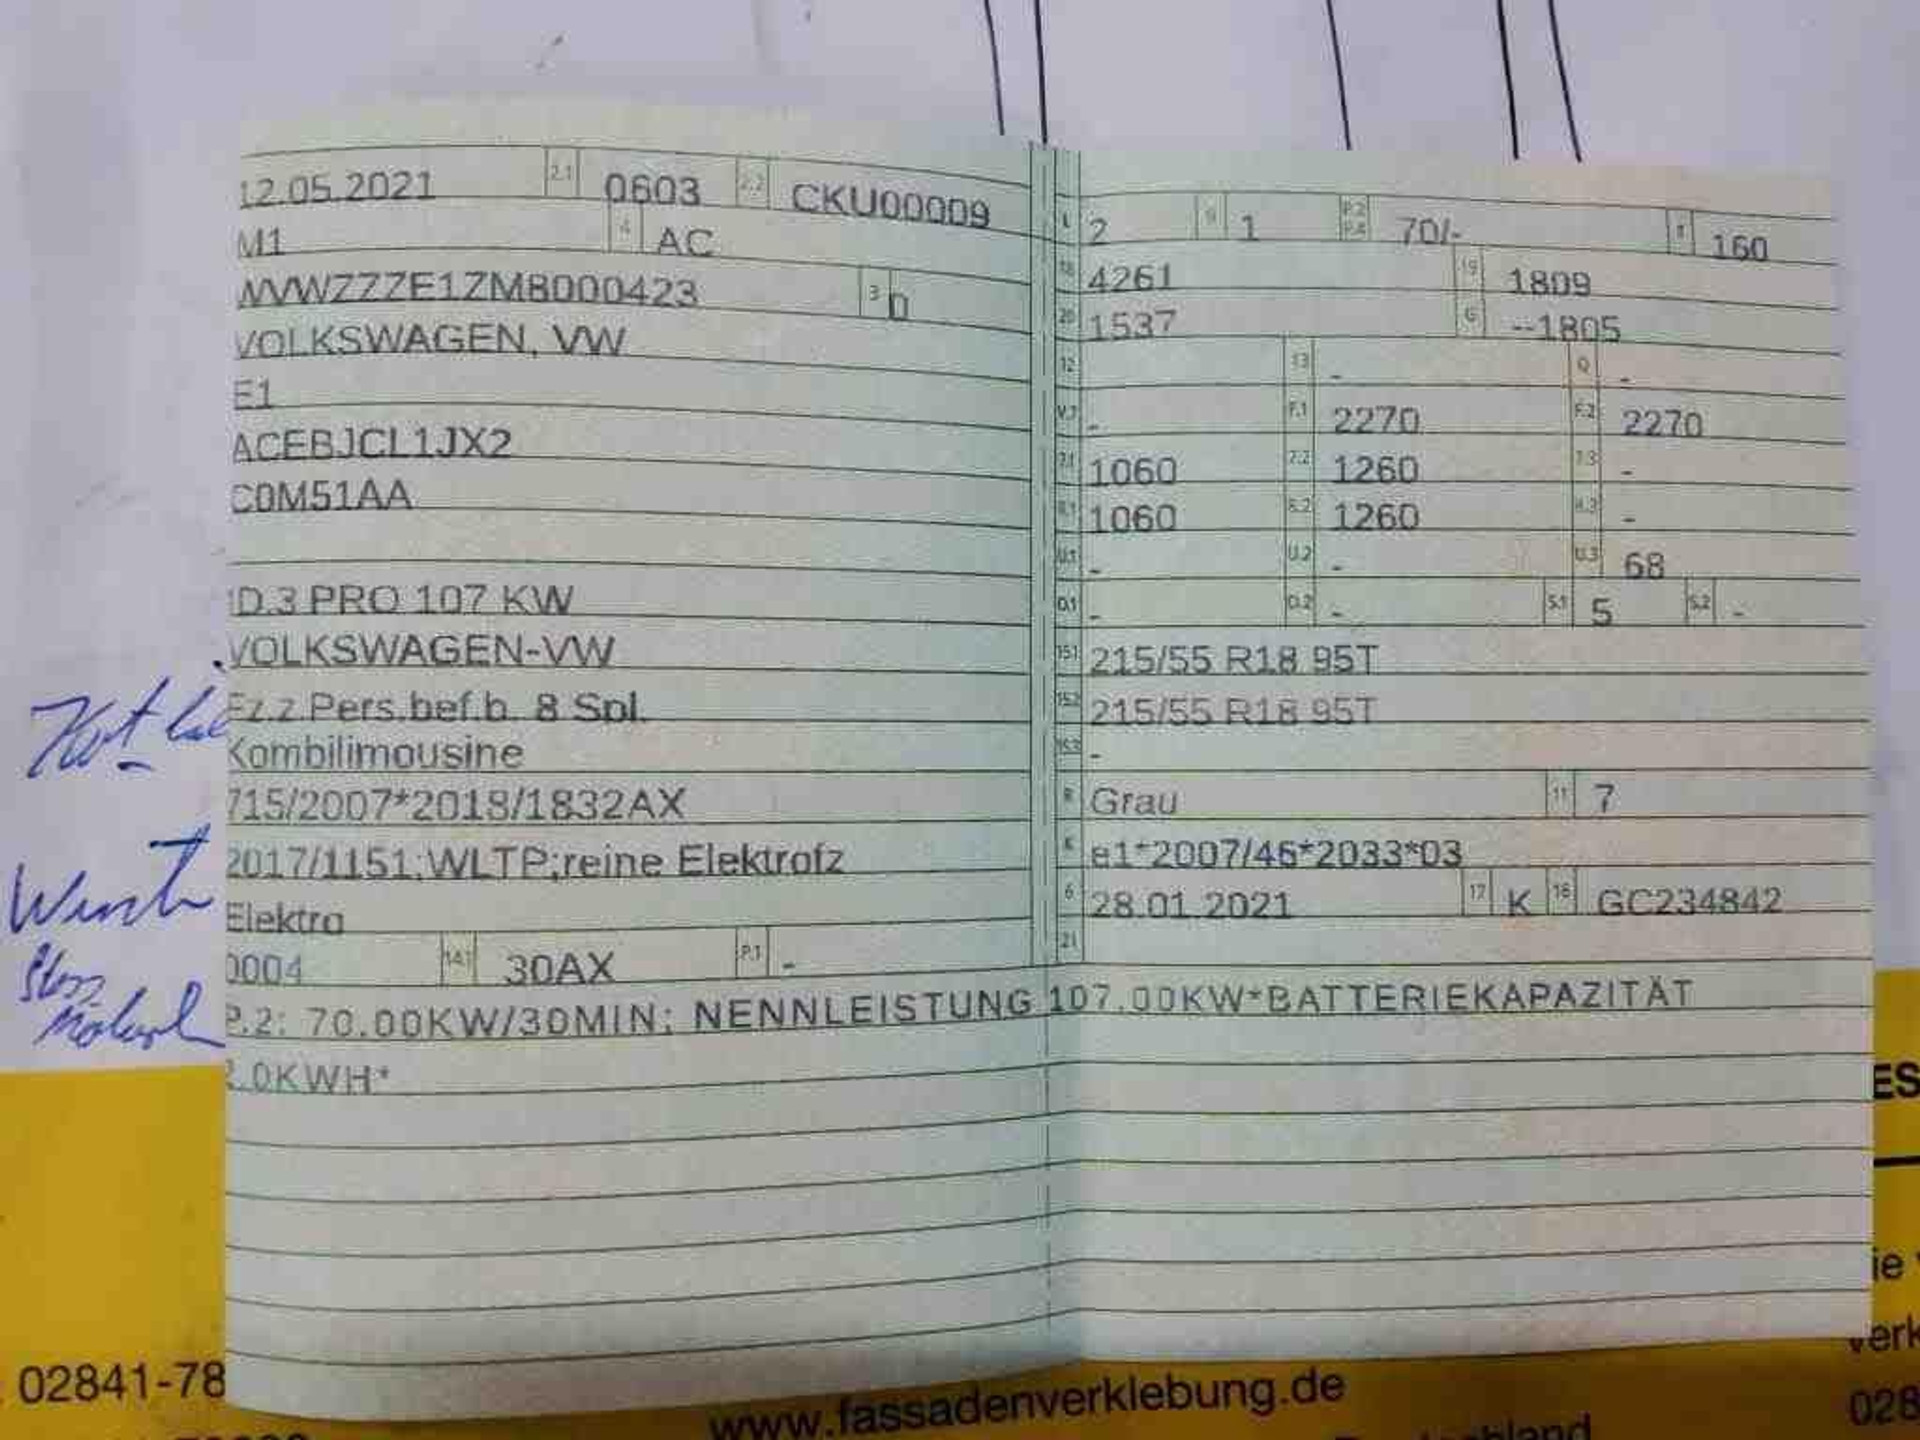 12.05.2021 2.1 0603 2.2 CKU00009
M1 4 AC
WVWZZZE1ZM8000423 3 0
VOLKSWAGEN, VW
E1
ACEBJCL1JX2
C0M51AA
ID.3 PRO 107 KW
VOLKSWAGEN-VW
Fz.z.Pers.bef.b. 8 Spl.
Kombilimousine
715/2007*2018/1832AX
2017/1151;WLTP;reine Elektrofz
Elektro
0004 14.1 30AX P.1 -
L 2 9 1 P.2 P.4 70/- T 160
18 4261 19 1809
20 1537 G --1805
12 13 - Q -
V.7 - F.1 2270 F.2 2270
7.1 1060 7.2 1260 7.3 -
8.1 1060 8.2 1260 8.3 -
U.1 - U.2 - U.3 68
O.1 - O.2 - S.1 5 S.2 -
15.1 215/55 R18 95T
15.2 215/55 R18 95T
15.3 -
R Grau 11 7
K e1*2007/46*2033*03
6 28.01.2021 17 K 16 GC234842
21
P.2: 70.00KW/30MIN; NENNLEISTUNG 107.00KW*BATTERIEKAPAZITÄT
.0KWH*
ES
ie
verk
02841-78
www.fassadenverklebung.de
028